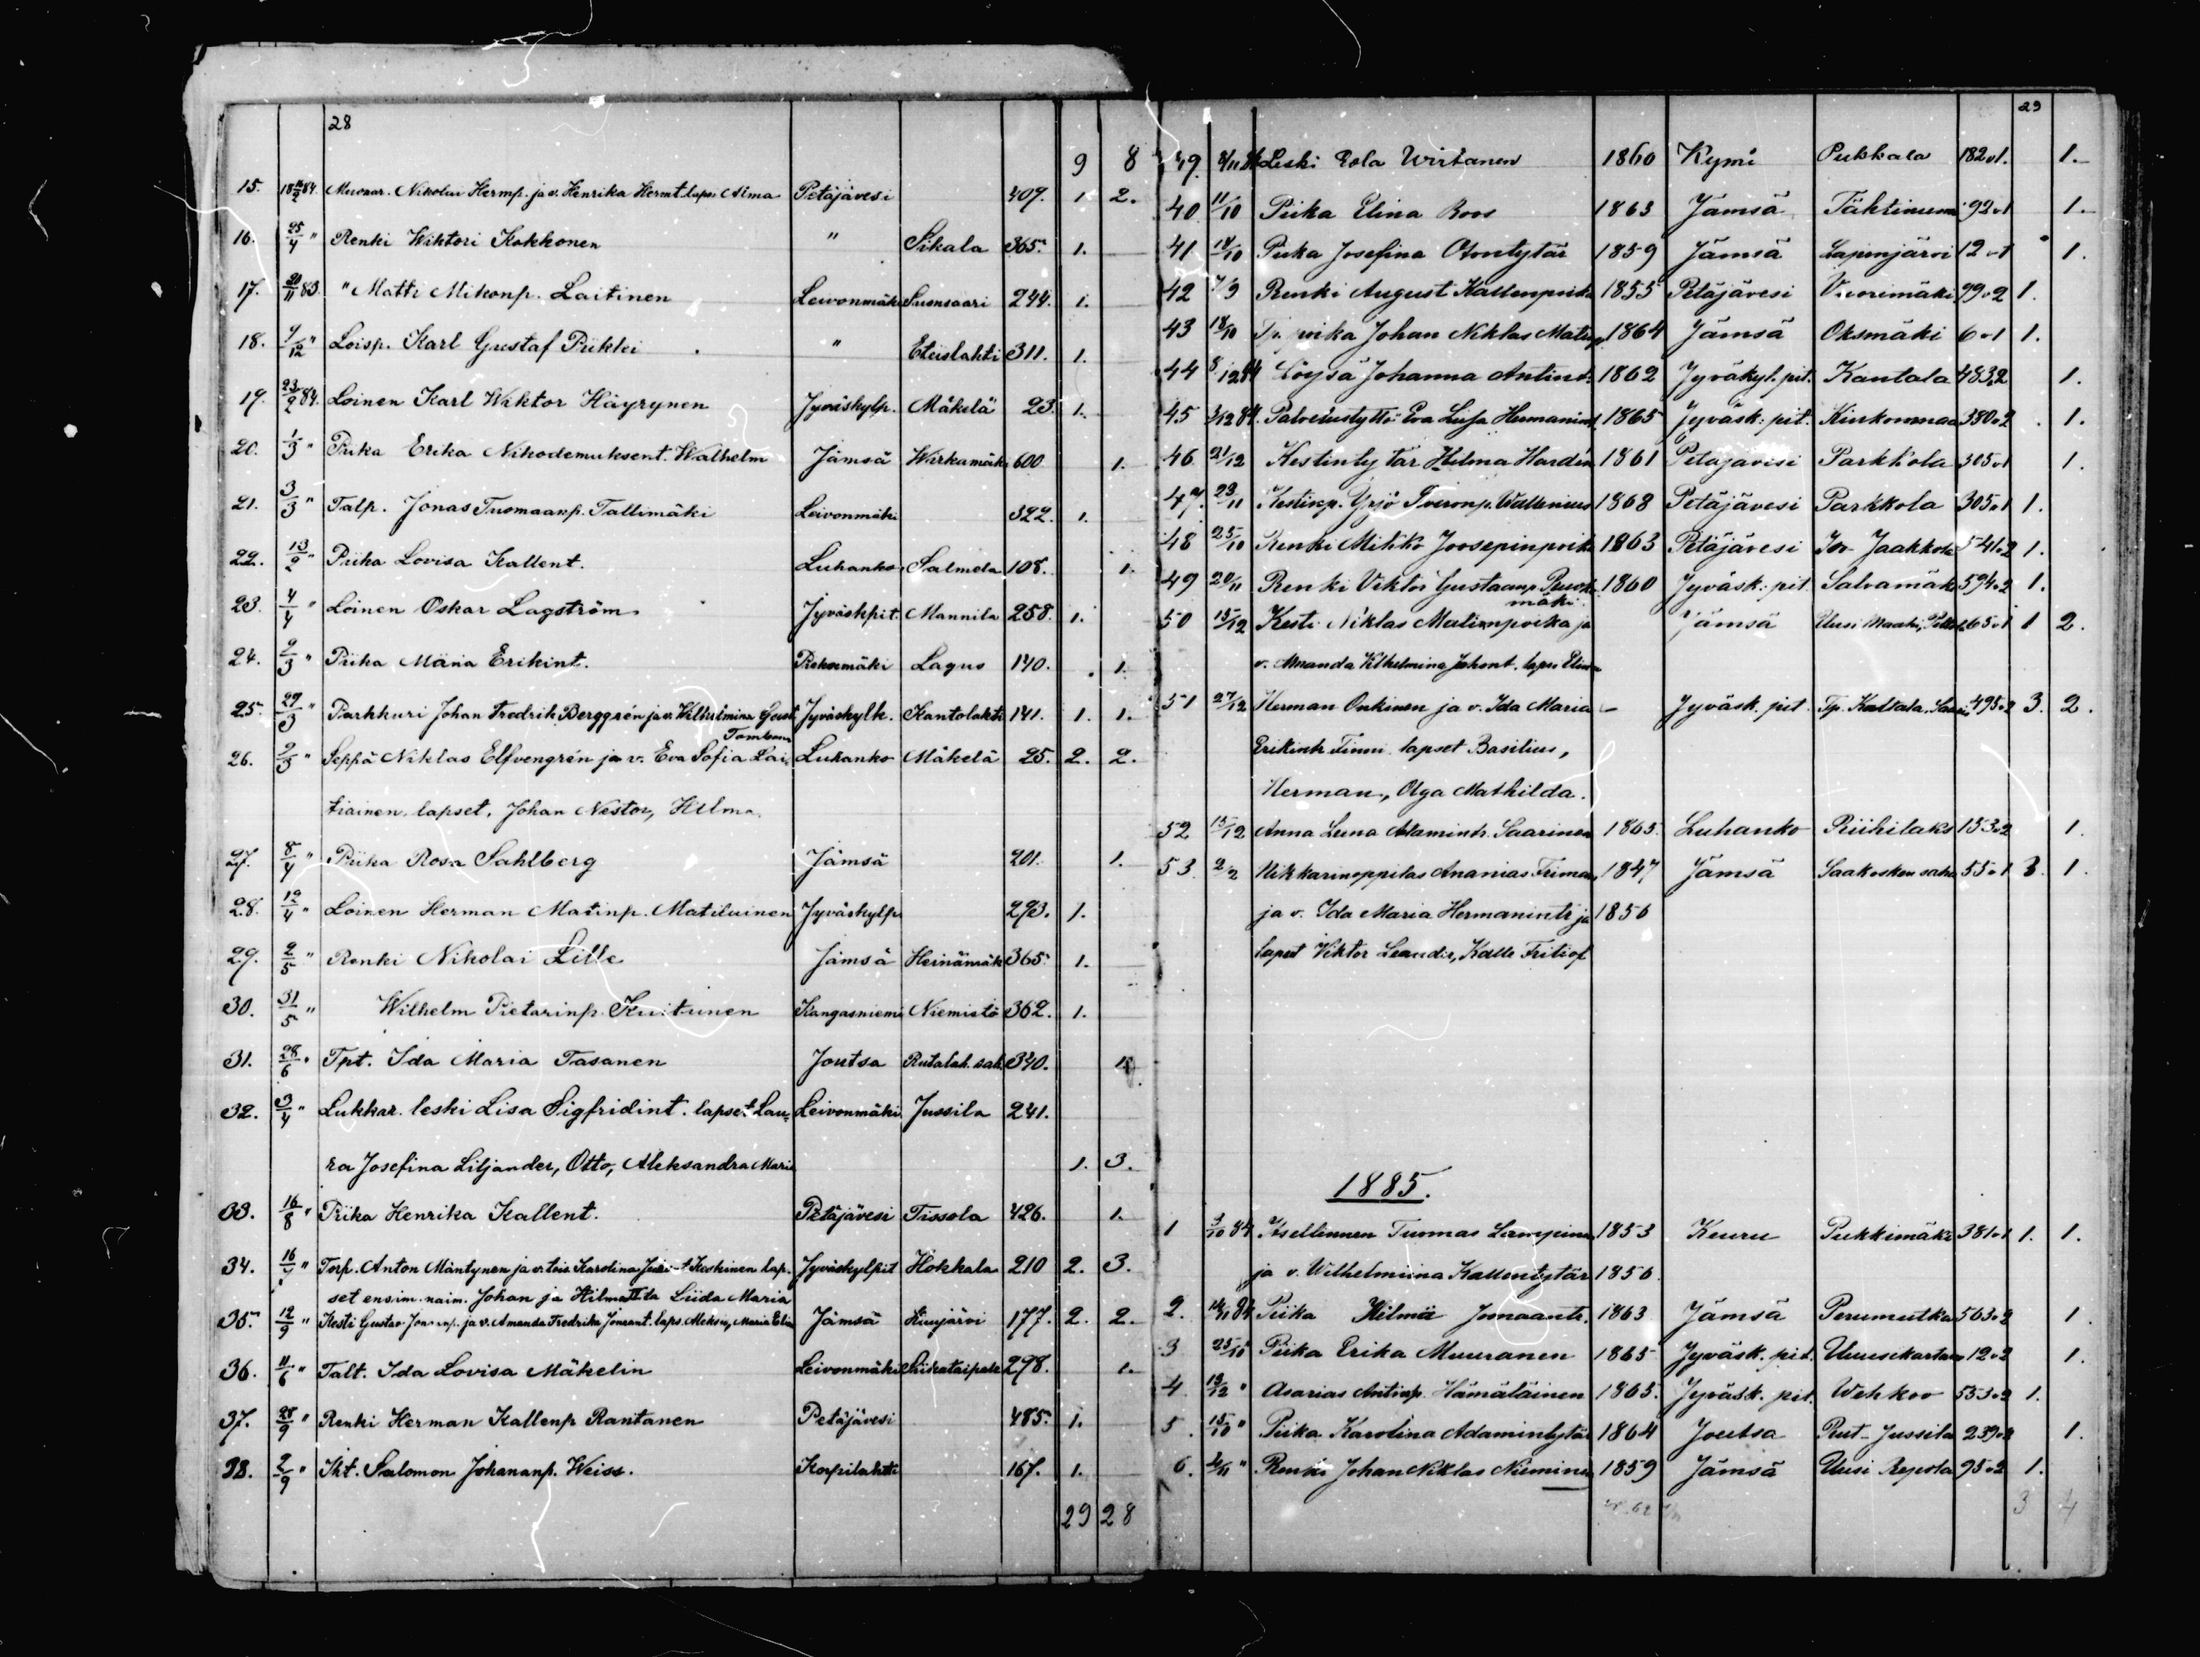 28
9 8
15. 18 11/2 84. Muurar. Nikolai Hermp. ja v. Henrika Hermt. laps. Alma Petäjävesi 409. 1 2.
16. 25/4 " Renki Wiktori Kokkonen " Sikala 365. 1.
17. 20/11 83. " Matti Mikonp. Laitinen Leivonmäki Suonsaari 244. 1.
18. 4/12 " Loisp. Karl Gustaf Piikki " Eteislahti 311. 1.
19. 23/2 84. Loinen Karl Wiktor Häyrynen Jyväskylp. Mäkelä 23. 1.
20. 1/3 " Piika Erika Nikodemuksent. Walhelm Jämsä Wirkamäki 600 1.
21. 3/3 " Talp. Jonas Tuomaanp. Tallimäki Leivonmäki 322. 1.
22. 13/2 " Piika Lovisa Kallent. Luhanko Salmela 108. 1.
23. 4/4 " Loinen Oskar Lagström Jyväskpit. Mannila 258. 1.
24. 2/3 " Piika Maria Erikint. Pieksämäki Lagus 140. 1.
25. 29/3 " Parkkuri Johan Fredrik Berggrén ja v. Wilhelmina Gust. Jyväskylk. Kantolahti 141. 1. 1.
26. 2/3 " Seppä Niklas Elfvengrén ja v. Eva Sofia Lai- Luhanko Mäkelä 25. 2. 2.
tiainen. lapset, Johan Nestor, Hilma.
27. 8/4 " Piika Rosa Sahlberg Jämsä 201. 1.
28. 12/4 " Loinen Herman Matinp. Matiluinen Jyväskylp. 293. 1.
29. 2/5 " Renki Nikolai Lille Jämsä Heinämäk 365. 1.
30. 31/5 " Wilhelm Pietarinp. Kuitunen Kangasniemi Niemistö 362. 1.
31. 28/6 " Tpt. Ida Maria Tasanen Joutsa Rutalah. sah. 340. 1.
32. 3/4 " Lukkar. leski Lisa Sigfridint. lapset Lau- Leivonmäki Jussila 241.
ra Josefina Liljander, Otto, Aleksandra Maria 1. 3.
33. 16/8 " Piika Henrika Kallent. Petäjävesi Tissola 426. 1.
34. 16/4 " Torp. Anton Mäntynen ja v. Karolina Keskinen lap- Jyväskylpit Hökkala 210 2. 3.
set ensim. naim. Johan ja Hilma II:ta Liida Maria
35. 12/9 " Kesti Gustav ja v. Amanda Fredrika Joonant. laps. Aleksi, Maria Elin Jämsä 177. 2. 2.
36. 11/6 " Talt. Ida Lovisa Mäkelin Leivonmäki Siikataipale 298. 1.
37. 28/9 " Renki Herman Kallenp Rantanen Petäjävesi 485. 1.
38. 2/9 " Iht. Salomon Johananp. Weiss. Korpilahti 167. 1.
29 28
29
49. 8/11 84 Leski Eola Wirtanen 1860 Kymi Pukkala 182 v 1. 1.
40 11/10 Piika Elina Roos 1863 Jämsä Tähtiniemi 92 v 1 1.
41 18/10 Piika Josefina Otontytär 1859 Jämsä Lapinjärvi 12 v 1 1.
42 7/9 Renki August Kallenpoika 1855 Petäjävesi Vuorimäki 99 v 2 1.
43 18/10 Tp. poika Johan Niklas Matinp. 1864 Jämsä Oksmäki 6 v 1 1.
44 8/12 84 Löysä Johanna Antint. 1862 Jyväkyl. pit. Kantala 483.2 1.
45 3/12 84. Palvelustyttö Eva Liisa Hermanint. 1865 Jyväsk: pit. Kirkonmaa 380 v 2 1.
46 21/12 Kestintytär Hilma Hardén 1861 Petäjävesi Parkkola 305 v 1 1.
47. 23/11 Kestinp. Yrjö Iivoronp. Wallenius 1868 Petäjävesi Parkkola 305 v 1 1.
48 25/10 Renki Mikko Joosepinpoik 1863 Petäjävesi Iso Jaakkola 541 v 2 1.
49 20/11 Renki Viktor Gustaanp. Ruok- 1860 Jyväsk: pit. Salvamäki 594 v 2 1.
mäki.
50 15/12 Kesti Niklas Matinpoika ja Jämsä Uusi 165 v 1 1 2.
v. Amanda Vilhelmina Johant. laps. Elina
51 27/12 Herman Onkinen ja v. Ida Maria — Jyväsk. pit. Tp. Kaltala. 495 v 2 3. 2.
Erikintr Finni. lapset Basilius,
Herman, Olga Mathilda.
52 15/12 Anna Leena Adamintr. Saarinen 1863. Luhanko Riihilaks 153 v 2 1.
53. 2/2 Nikkarinoppilas Ananias Friman 1847 Jämsä Saakosken saha 55 v 1 3. 1.
ja v. Ida Maria Hermanintr ja 1856
lapset Viktor Leander, Kalle Fritiof
1885.
1 3/10 84 Itsellinnen Tuomas Lampinen 1853 Keuru Pukkimäki 381 v 1 1. 1.
ja v. Wilhelmiina Kallentytär 1856.
2. 14/11 84 Piika Hilma Joonaantr. 1863. Jämsä Perumutka 563 v 2 1.
3 25/10 Piika Erika Muuranen 1865 Jyväsk. pit. Uuusikartano 12 v 2 1.
4. 13/12 " Asarias Antinp. Hämäläinen 1863. Jyväsk. pit. Wehkoo 553 v 2 1.
5. 15/10 " Piika Karolina Adamintytär 1864 Joutsa Rut-Jussila 239 v 2 1.
6. 2/11 " Renki Johan Niklas Nieminen 1859 Jämsä Uusi Repola 95 v 2 1.
3 4